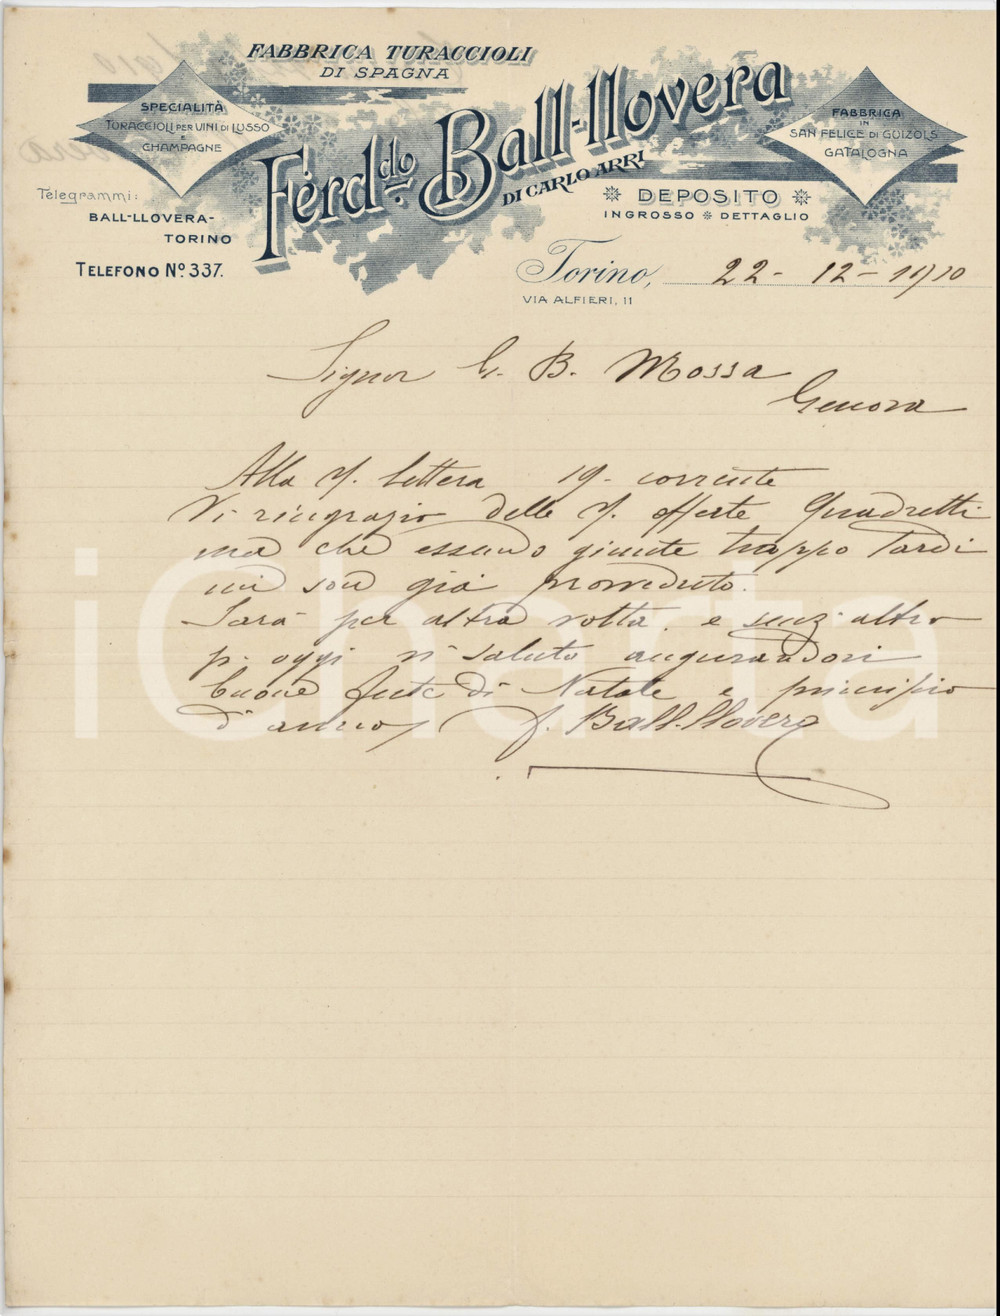 FABBRICA TURACCIOLI
DI SPAGNA
SPECIALITÀ
TURACCIOLI PER VINI DI LUSSO
E
CHAMPAGNE
Ferd.do Ball-llovera
DI CARLO ARRI
FABBRICA
IN
SAN FELICE DI GUIZOLS
CATALOGNA
DEPOSITO
INGROSSO DETTAGLIO
Telegrammi:
BALL-LLOVERA-
TORINO
TELEFONO No. 337.
Torino, 22-12-1910
VIA ALFIERI, 11
Signor G. B. Mossa
Genova
Alla V. lettera 19. corrente
Vi ringrazio delle V. offerte Quadretti
ma che essendo giunte troppo Tardi
mi son già provveduto.
Sarà per altra volta. e senz'altro
p. oggi vi saluto augurandovi
buone feste di Natale e principio
d'anno F. Ball-llovera
iCharta